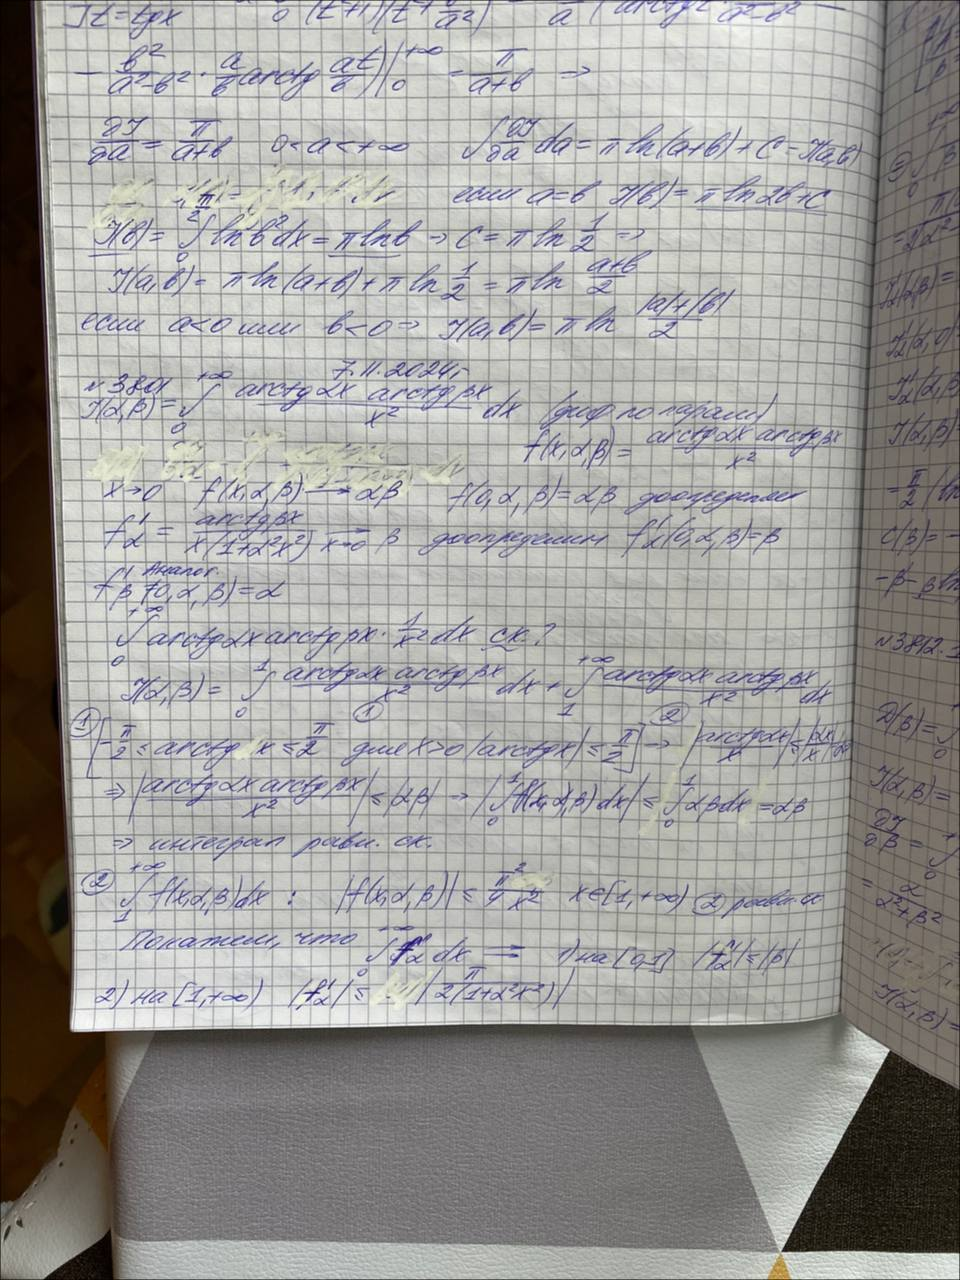 J t=tgx 0 (t²+1)(t²+b²/a²) a (arctg a²-b²
- b²/(a²-b²) · a/b arctg at/b)|₀^{+∞} = π/(a+b) ⇒
∂J/∂a = π/(a+b) 0<a<+∞ ∫ ∂J/∂a da = π ln(a+b) + C = J(a,b)
если a=b J(b) = π ln2b + C
J(b) = ∫₀^{π/2} ln b² dx = π ln b → C = π ln 1/2 ⇒
J(a,b) = π ln(a+b) + π ln 1/2 = π ln (a+b)/2
если a<0 или b<0 ⇒ J(a,b) = π ln (|a|+|b|)/2
7.11.2024г
№3801
J(α,β) = ∫₀^{+∞} (arctgαx arctgβx)/x² dx (диф по парам)
f(x,α,β) = (arctgαx arctgβx)/x²
x→0 f(x,α,β) → αβ f(0,α,β)=αβ доопределим
f'α = arctgβx/(x(1+α²x²)) →_{x→0} β доопределим f'α(0,α,β)=β
Аналог.
f'β(0,α,β)=α
∫₀^{+∞} arctgαx arctgβx · 1/x² dx сх?
J(α,β) = ∫₀¹ (arctgαx arctgβx)/x² dx + ∫₁^{+∞} (arctgαx arctgβx)/x² dx
① ②
① [-π/2 ≤ arctg x ≤ π/2 для x>0 |arctgx| ≤ π/2] → |arctgαx/x| ≤ |αx/x|
⇒ |(arctgαx arctgβx)/x²| ≤ |αβ| → |∫₀¹ f(x,α,β)dx| ≤ ∫₀¹ αβdx = αβ
⇒ интеграл равн. сх.
② ∫₁^{+∞} f(x,α,β)dx : |f(x,α,β)| ≤ π²/4x² x∈[1,+∞) ② равн. сх
Покажем, что ∫₀^{+∞} f'α dx ⇉ 1) на [0,1] |f'α| ≤ |β|
2) на [1,+∞) |f'α| ≤ |π/2(1+α²x²)|
J₂(α,β) =
J₂'(α,β
J(α,β) =
C(β) = -
№3812.
D(β) = ∫₀
J(α,β) =
∂J/∂β = ∫₀
= α/(α²+β²)
J(α,β) =